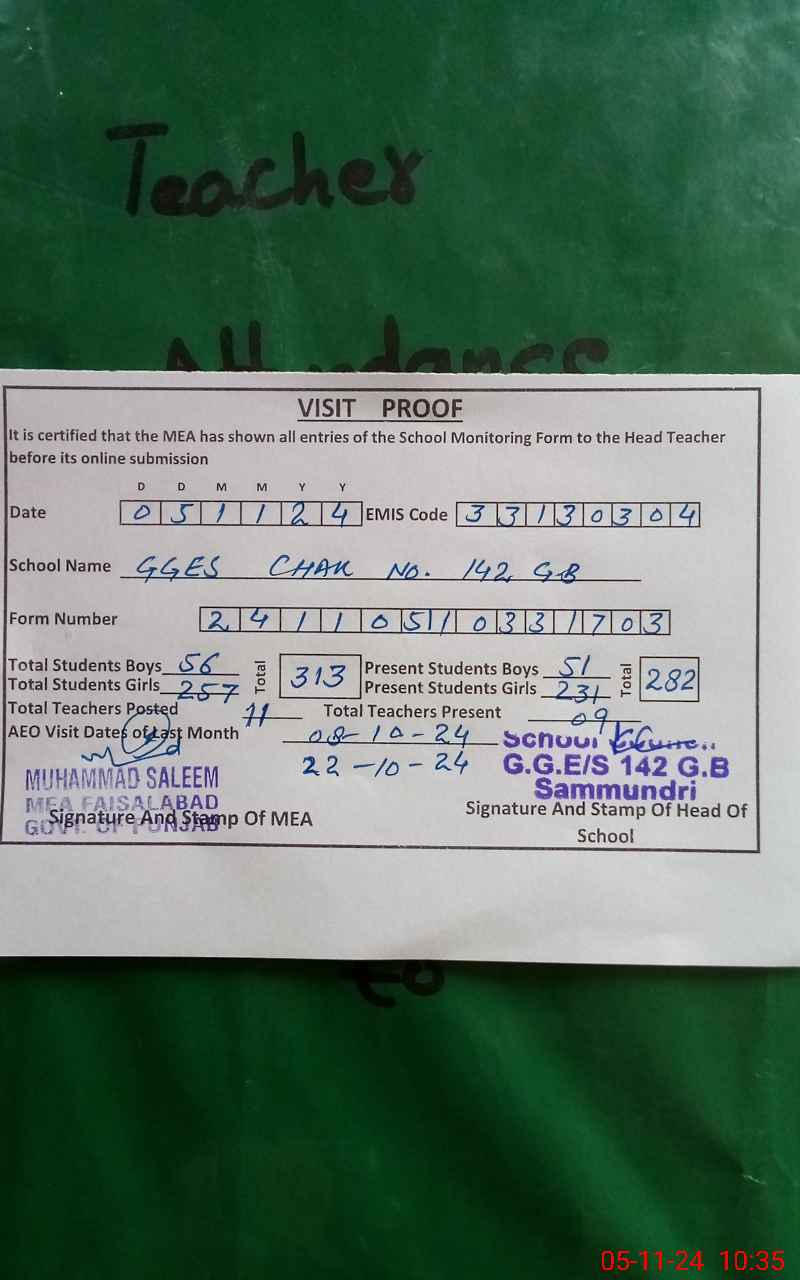 Teacher
Attendance
VISIT PROOF
It is certified that the MEA has shown all entries of the School Monitoring Form to the Head Teacher
before its online submission
D D M M Y Y
Date 0 5 1 1 2 4 EMIS Code 3 3 1 3 0 3 0 4
School Name GGES CHAK NO. 142 GB
Form Number 2 4 1 1 0 5 1 0 3 3 1 7 0 3
Total Students Boys 56 Total 313 Present Students Boys 51 Total 282
Total Students Girls 257 Present Students Girls 231
Total Teachers Posted 11 Total Teachers Present 09
AEO Visit Dates of Last Month 08-10-24
22-10-24
MUHAMMAD SALEEM
MEA FAISALABAD
GOVT. OF PUNJAB
Signature And Stamp Of MEA
School
G.G.E/S 142 G.B
Sammundri
Signature And Stamp Of Head Of
School
to
05-11-24 10:35